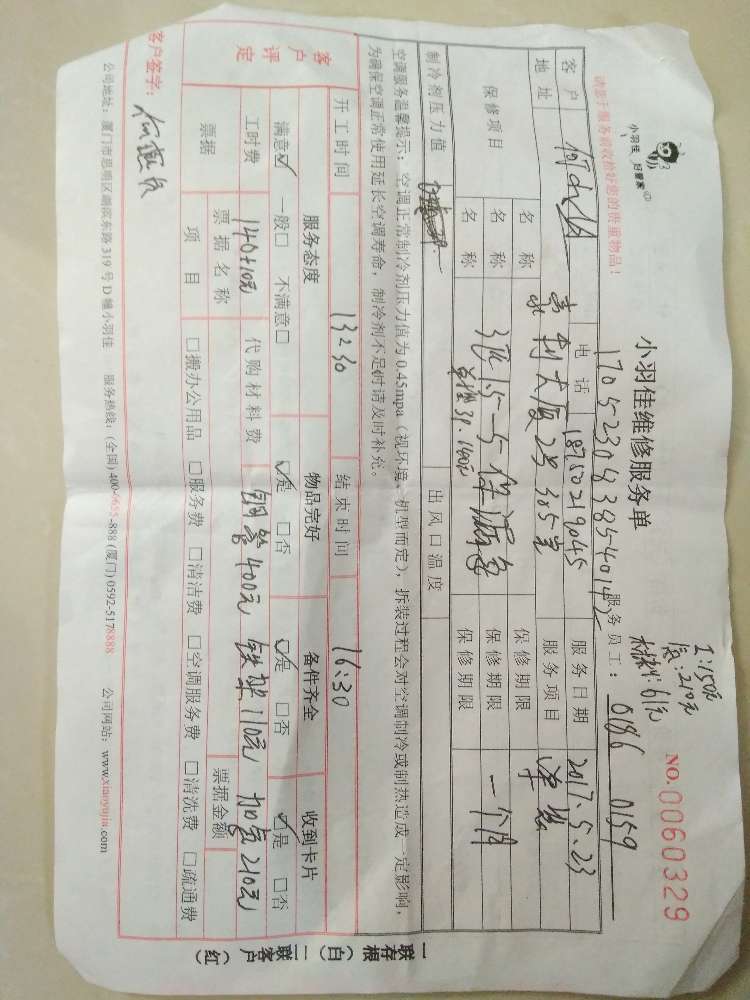 小羽佳 好管家
请您于服务前收拾好您的贵重物品！
小羽佳维修服务单
1705230838540142
工:150元
底:210元
材料:61元
NO.0060329
服务员工： 0186 0159
客户 电话 18750219045 服务日期 2017.5.23
地址 利大厦2号305室 服务项目
保修项目 名称 保修期限
名称 3匹 保修期限 一个月
名称 保修期限
制冷剂压力值 出风口温度
空调服务温馨提示：空调正常制冷剂压力值为0.45mpa（视环境、机型而定），拆装过程会对空调制冷或制热造成一定影响，
为确保空调正常使用延长空调寿命，制冷剂不足时请及时补充。
开工时间 13:30 结束时间 16:30
客户评定 服务态度 物品完好 备件齐全 收到卡片
满意☑ 一般□ 不满意□ ☑是 □否 ☑是 □否 ☑是 □否
工时费 140+10元 代购材料费 铜管400元 铁架110元 加氟210元
票据 票据名称 票据金额
项目 □搬办公用品 □服务费 □清洁费 □空调服务费 □清洗费 □疏通费
客户签字：
公司地址：厦门市思明区湖滨东路319号D幢小羽佳 服务热线：(全国)400-6655-888 (厦门)0592-5178888 公司网站：www.xiaoyujia.com
一联存根（白）二联客户（红）